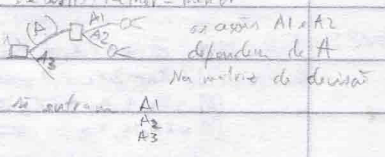 (A) A1
A2
A3
as ações A1 e A2
dependem de A
Na matriz de decisão
só entram A1
A2
A3